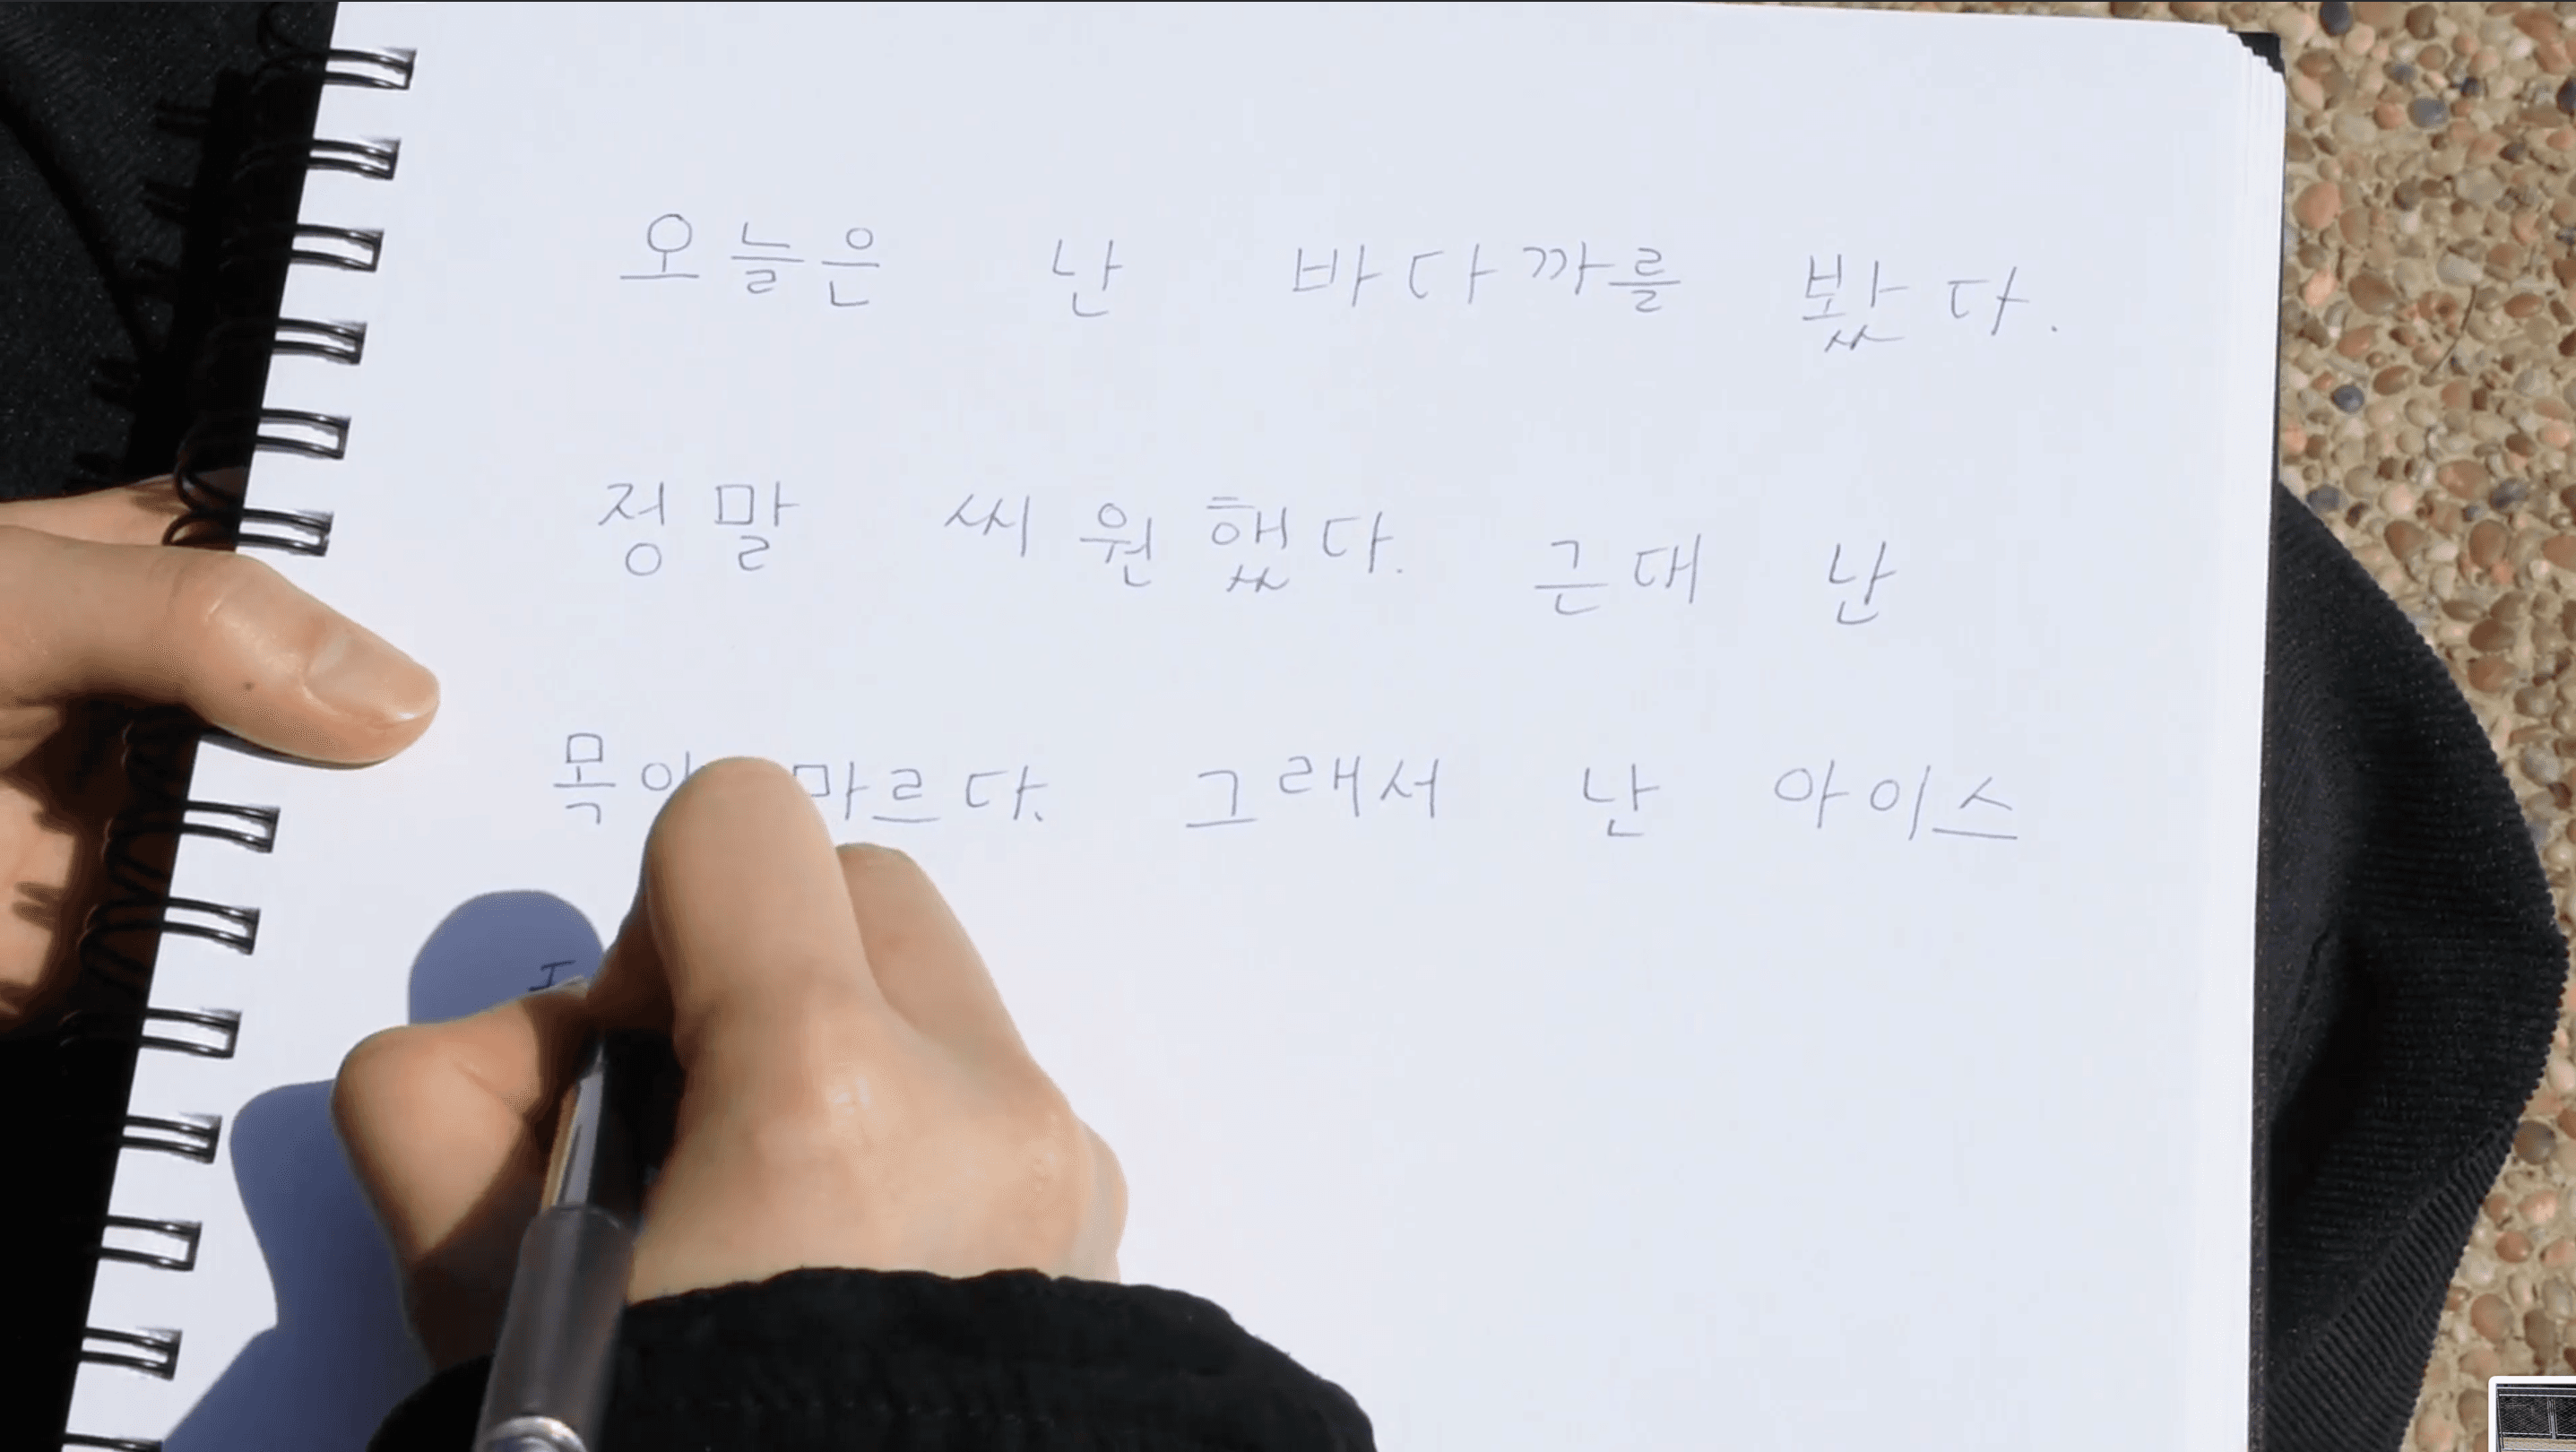 오늘은 난 바다까를 봤다.
정말 씨원했다. 근대 난
마르다. 그래서 난 아이스